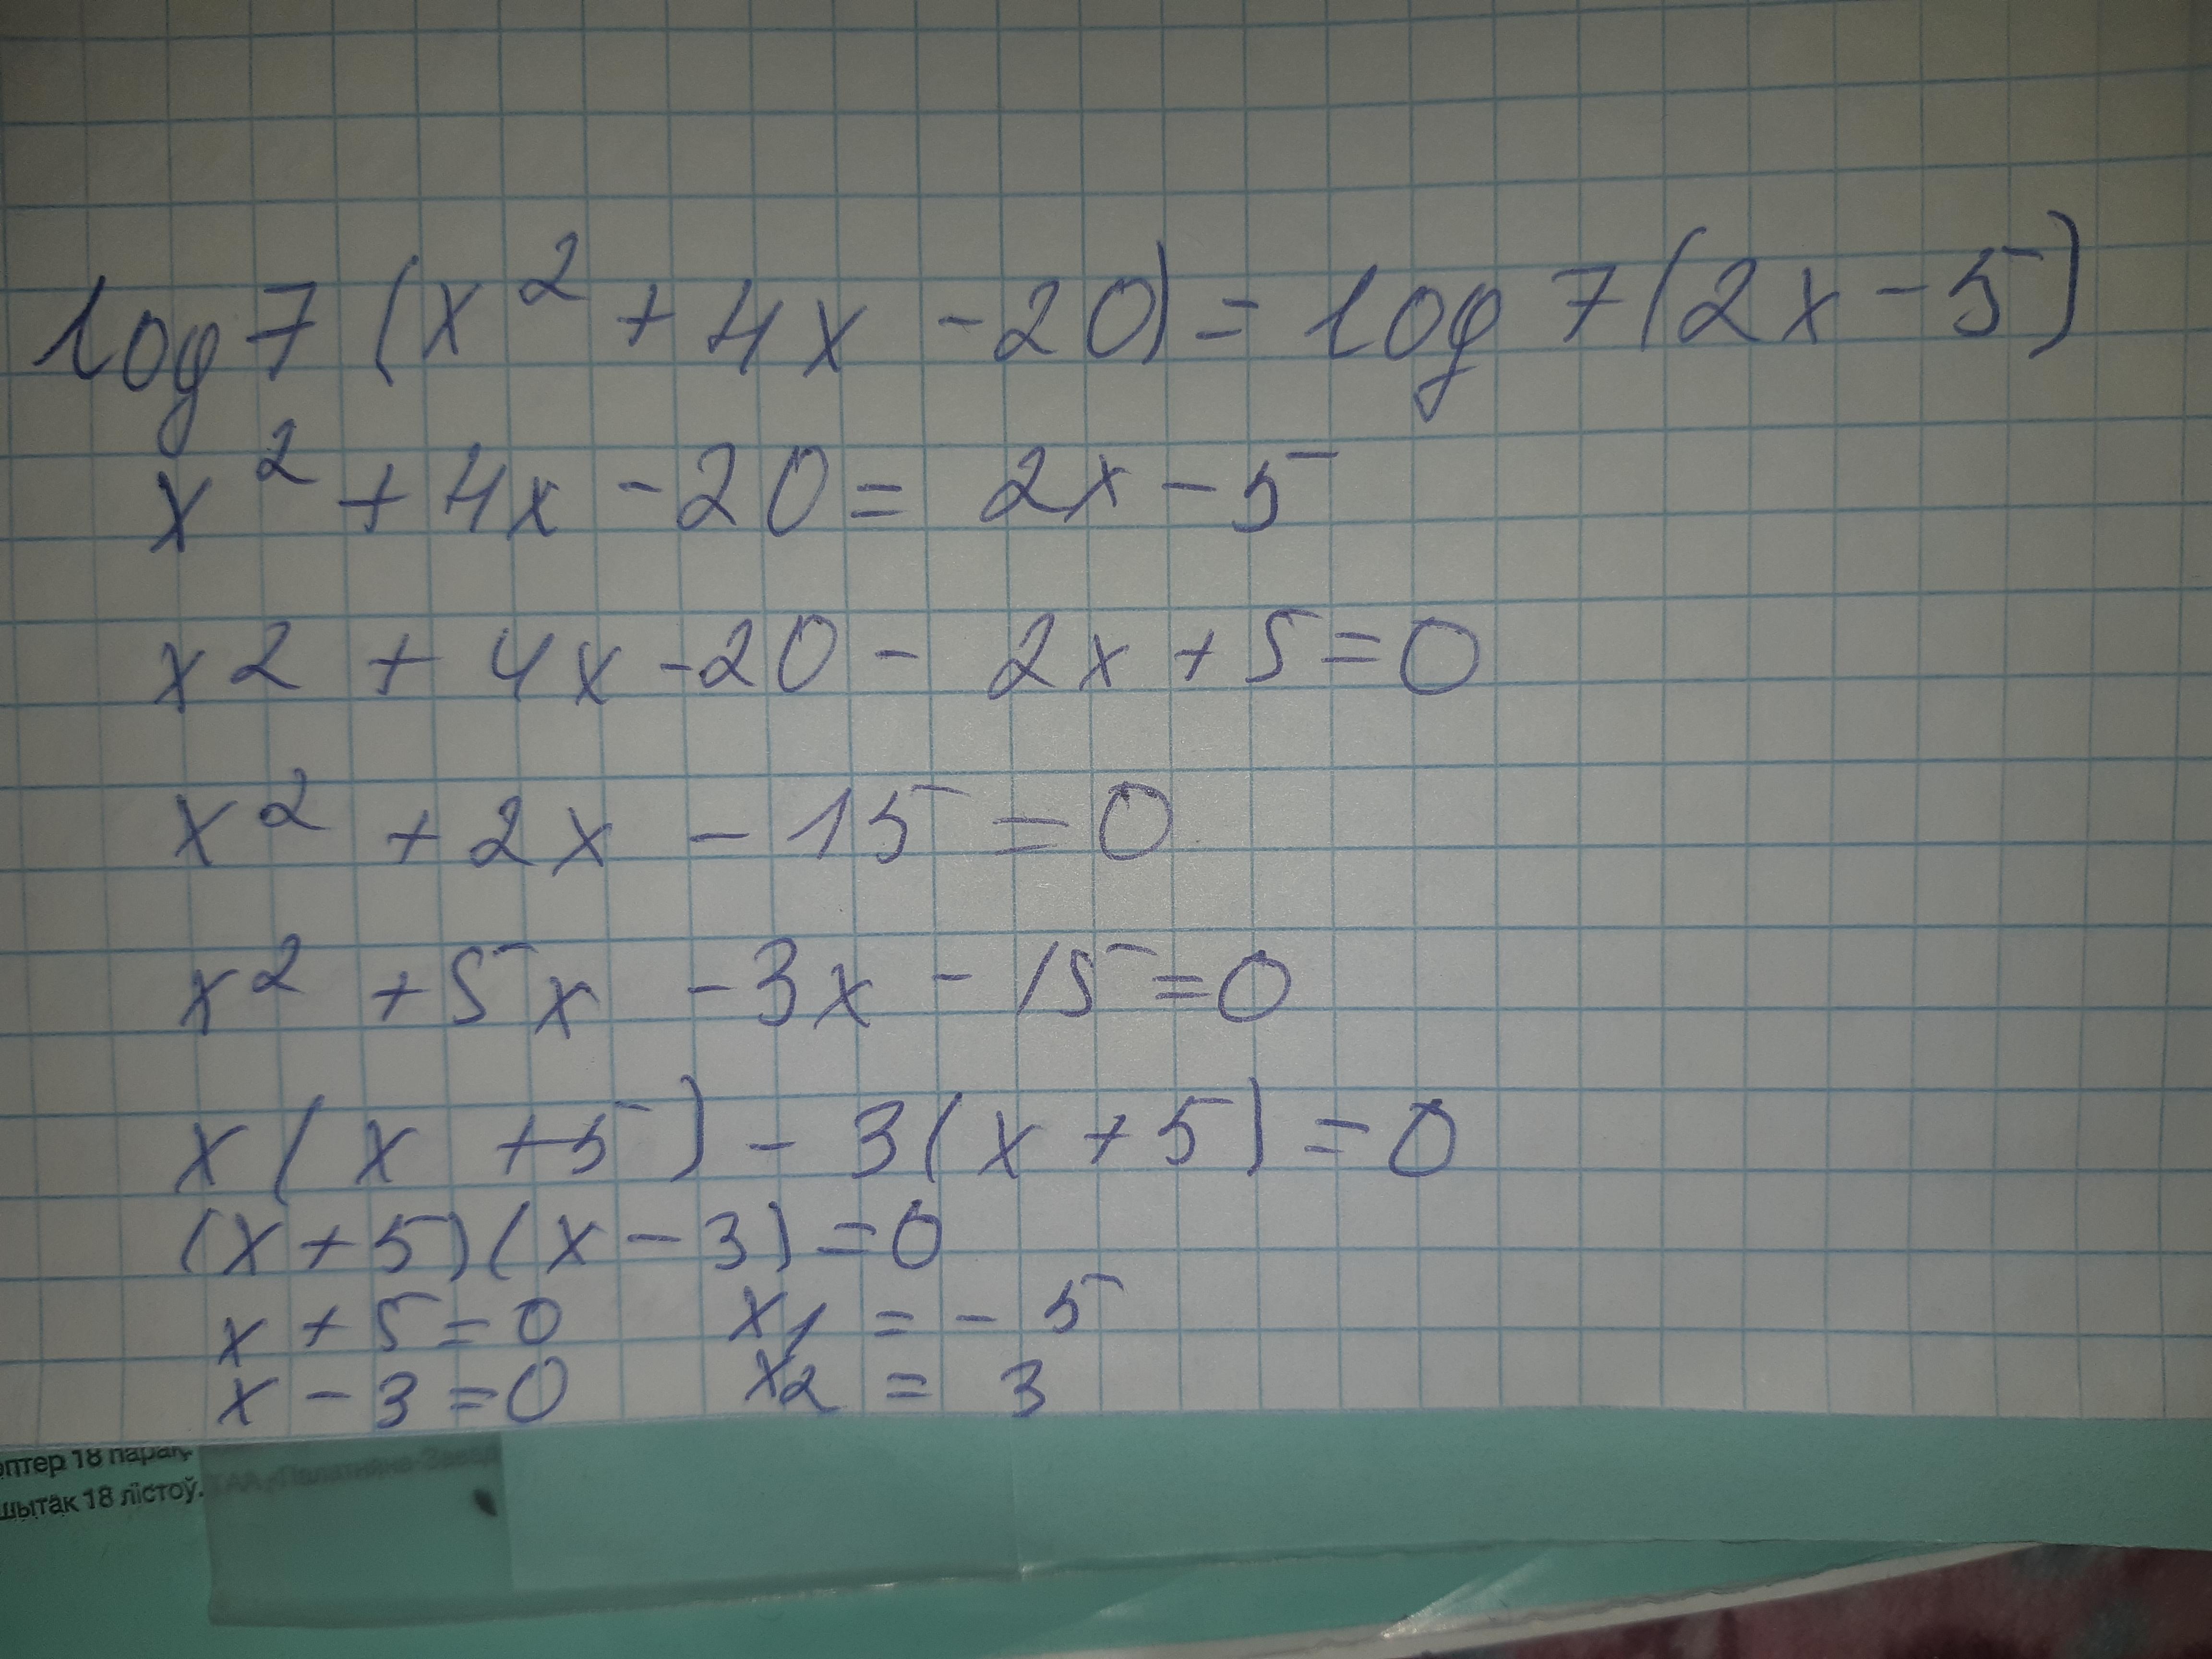 log 7 (x² + 4x - 20) = log 7 (2x - 5)
x² + 4x - 20 = 2x - 5
x2 + 4x - 20 - 2x + 5 = 0
x² + 2x - 15 = 0
x² + 5x - 3x - 15 = 0
x (x + 5) - 3 (x + 5) = 0
(x + 5) (x - 3) = 0
x + 5 = 0 x₁ = - 5
x - 3 = 0 x₂ = 3
18 парақ.
18 лістоў.